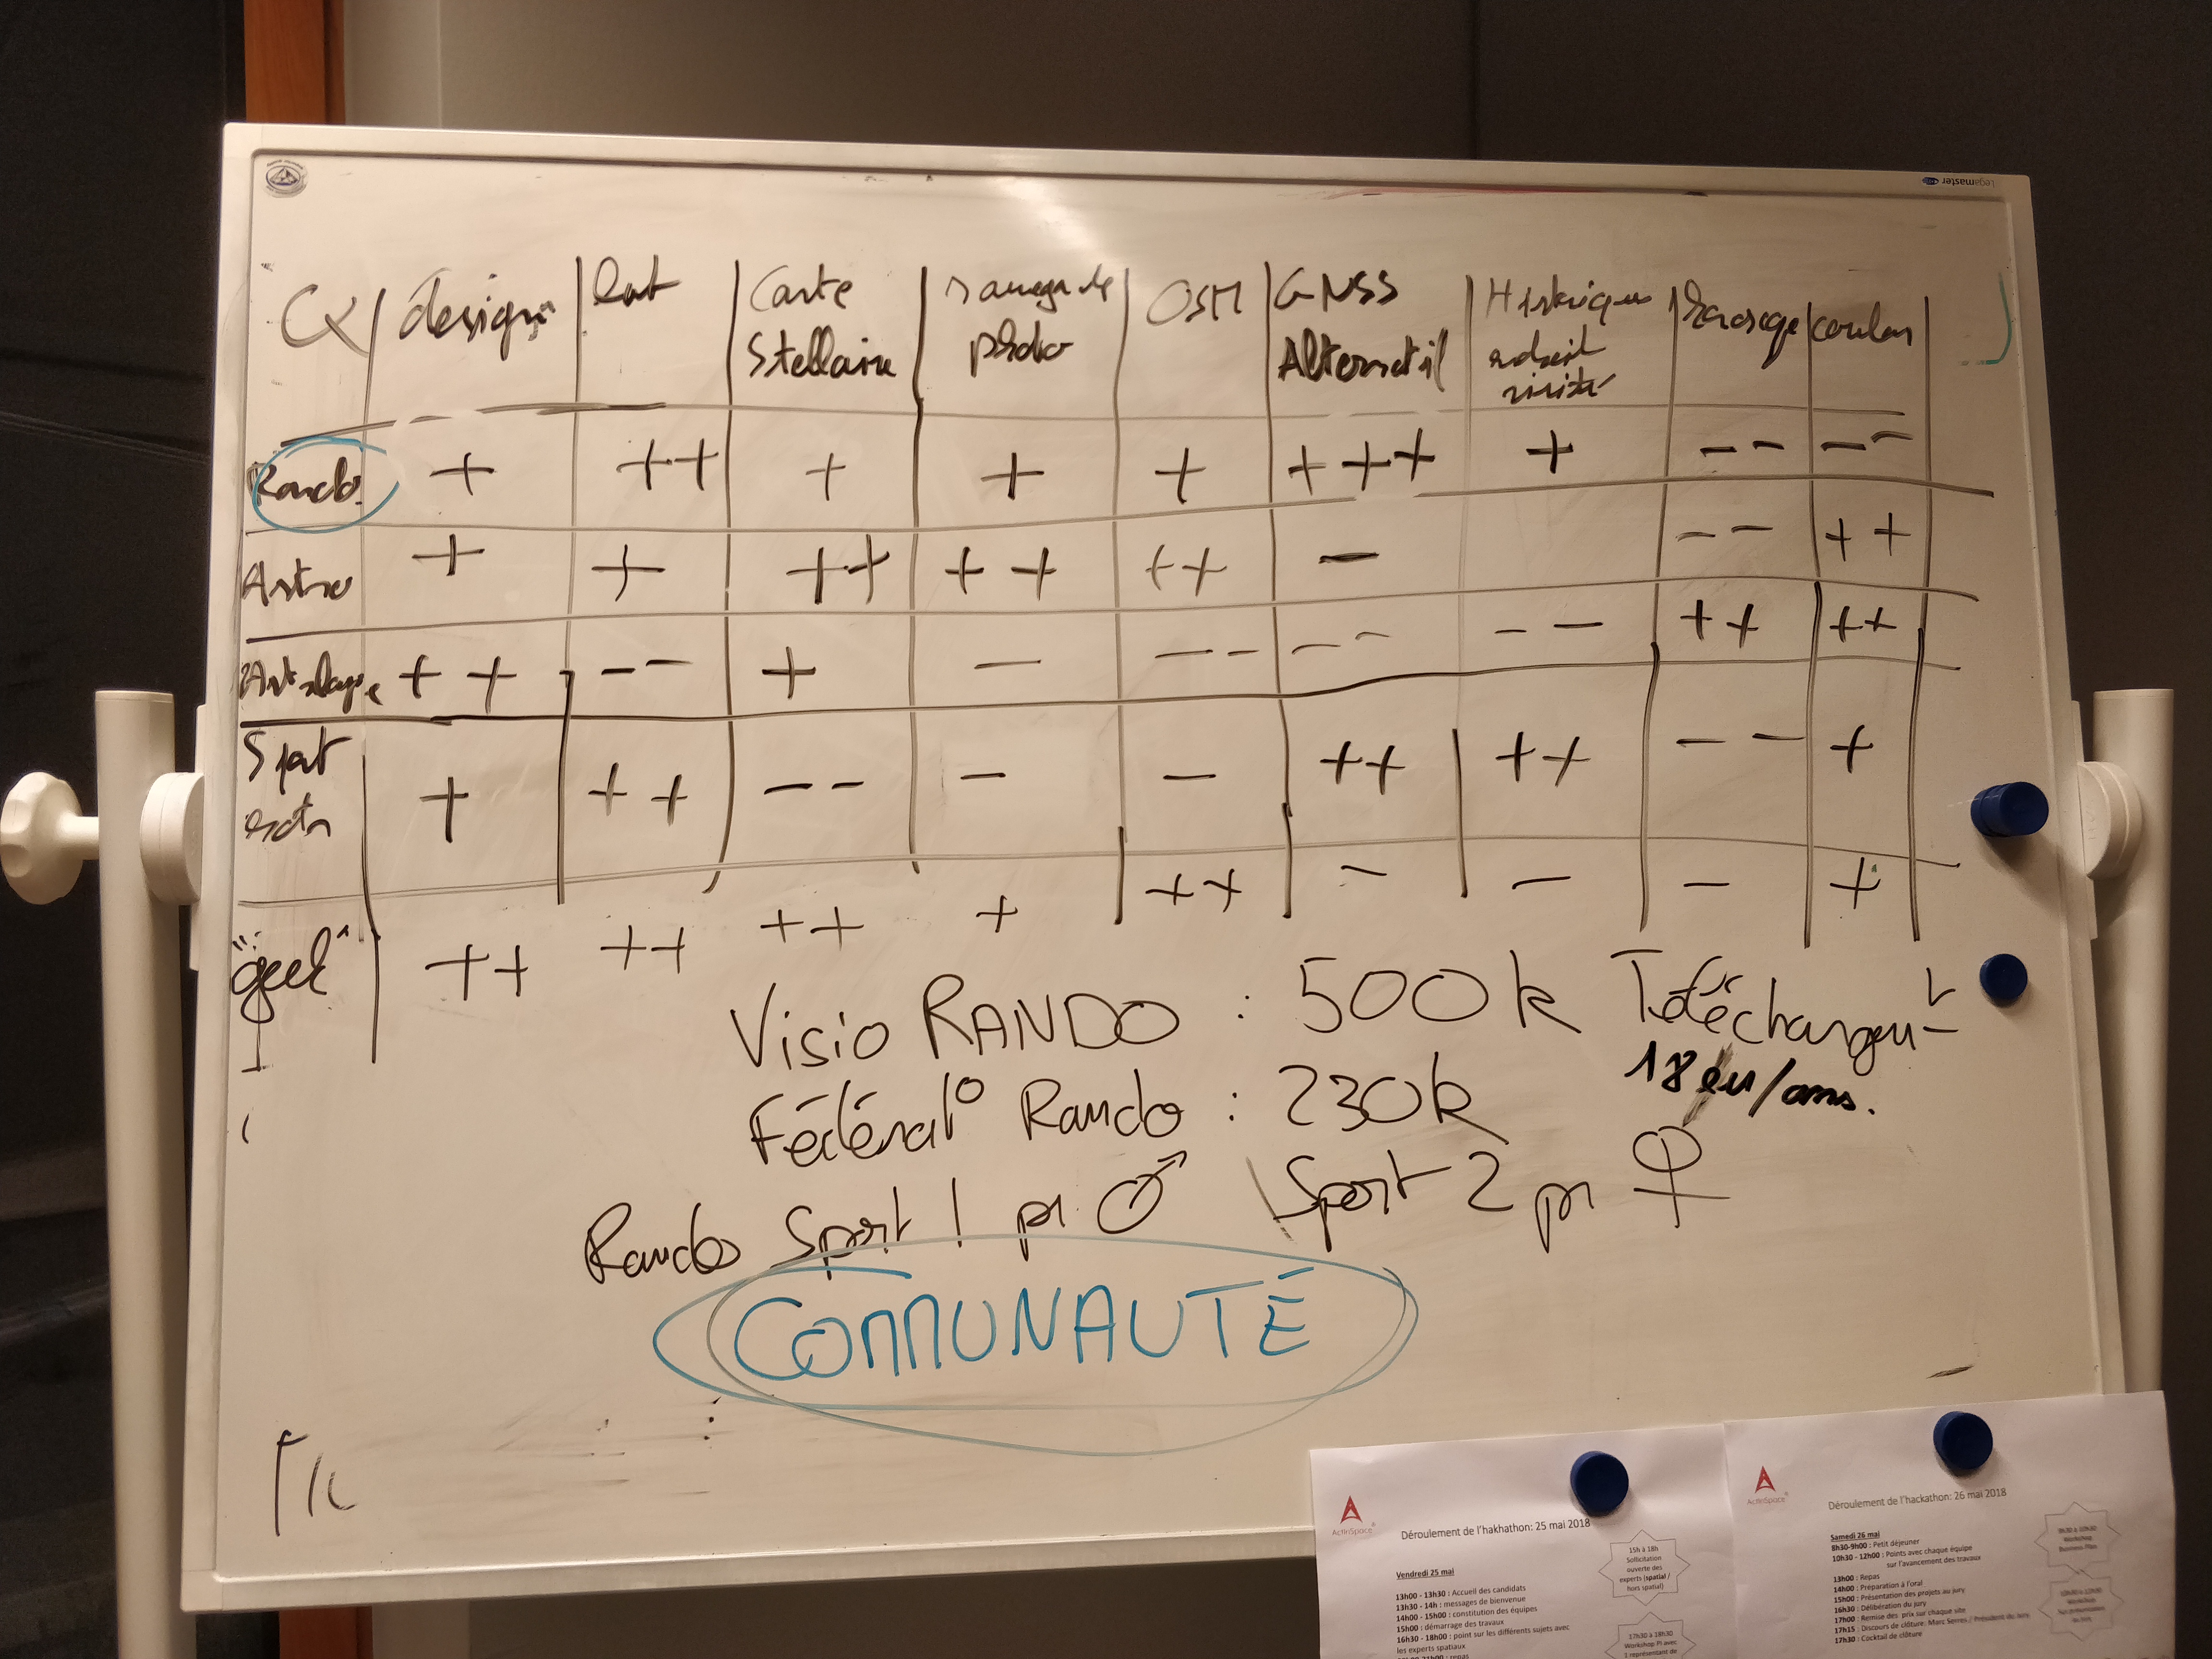 design
Carte
Stellaire
photo
OSM
GNSS
Alternatif
Historique
endroit
visité
Rando + ++ + + + +++ + -- --
Astro + + ++ ++ ++ - -- ++
++ -- + - -- -- -- ++ ++
Sport
extr + ++ -- - - ++ ++ -- +
"geek" ++ ++ ++ + ++ - - - +
Visio RANDO : 500k
18 eu/ans.
Fédérat° Rando : 230k
Rando Sport 1 pr ♂ Sport 2 pr ♀
COMMUNAUTÉ
Legamaster
ActInSpace
Déroulement de l'hakhathon: 25 mai 2018
Vendredi 25 mai
13h00 - 13h30 : Accueil des candidats
13h30 - 14h : messages de bienvenue
14h00 - 15h00 : constitution des équipes
15h00 : démarrage des travaux
16h30 - 18h00 : point sur les différents sujets avec
les experts spatiaux
15h à 18h
Sollicitation
ouverte des
experts (spatial /
hors spatial)
17h30 à 18h30
Workshop PI avec
1 représentant de
ActInSpace
Déroulement de l'hackathon: 26 mai 2018
Samedi 26 mai
8h30-9h00 : Petit déjeuner
10h30 - 12h00 : Points avec chaque équipe
sur l'avancement des travaux
13h00 : Repas
14h00 : Préparation à l'oral
15h00 : Présentation des projets au jury
16h30 : Délibération du jury
17h00 : Remise des prix sur chaque site
17h15 : Discours de clôture: Marc Serres / Président du Jury
17h30 : Cocktail de clôture
9h30 à 10h30
Workshop
Business Plan